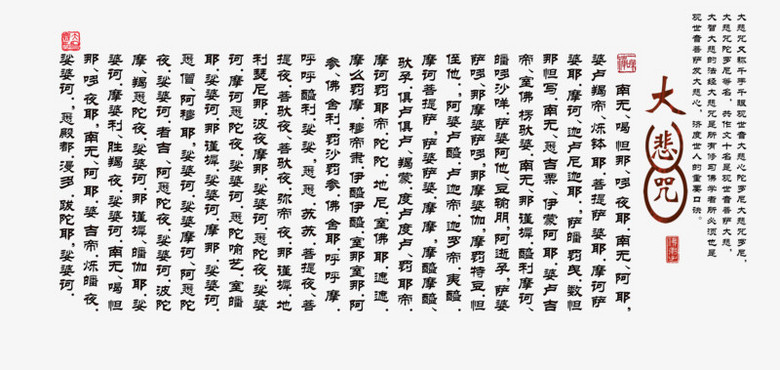 大悲咒又称千手千眼观世音大悲心陀罗尼大悲咒罗尼，
大悲咒陀罗尼等名，共作八十名是观世音菩萨大慈，
大智大慈的法经大悲咒是所有修习佛学者所必须也是
观世音菩萨发大慈心，济度世人的重要口诀。
大悲咒
南无、喝怛那、哆夜耶，南无、阿耶，
婆卢羯帝、烁钵耶，菩提萨婆耶，摩诃萨
婆耶，摩诃、迦卢尼迦耶，，萨皤罚曳，数怛
那怛写，南无、悉吉栗、伊蒙阿耶，婆卢吉
帝、室佛楞驮婆，南无、那谨墀醯利摩诃、
皤哆沙咩，萨婆阿他、豆输朋，阿逝孕，萨婆
萨哆，那摩婆萨哆，那摩婆伽，摩罚特豆，怛
侄他，，阿婆卢醯，卢迦帝，迦罗帝，夷醯，
摩诃菩提萨，萨婆萨婆，摩摩，摩醯摩醯、
驮孕，俱卢俱卢、羯蒙，度卢度卢、罚耶帝，
摩诃罚耶帝，陀陀，地尼，室佛耶，遮遮，
摩么罚摩，穆帝隶，伊醯伊醯，室那室那，阿
参、佛舍利，罚沙罚参，佛舍耶，呼呼摩，
呼呼醯利，娑娑，悉悉，苏苏，菩提夜、菩
提夜，菩驮夜，弥帝夜，那谨墀，地
利瑟尼那，波夜摩那，娑婆诃，悉陀夜，娑婆
诃，摩诃悉陀夜，娑婆诃，悉陀喻艺，室皤
耶，娑婆诃，那谨墀，娑婆诃，摩那，娑婆诃，
悉僧，阿穆耶，娑婆诃，娑婆摩诃，阿悉陀
夜，娑婆诃，者吉，阿悉陀夜，娑婆诃，波陀
摩、羯悉陀夜，娑婆诃，那谨墀、皤伽耶，娑
婆诃，摩婆利、胜羯夜，娑婆诃，南无、喝怛
那、哆夜耶，南无、阿耶，婆吉帝，烁皤夜，
娑婆诃，，悉殿都，漫多，跋陀耶，娑婆诃，